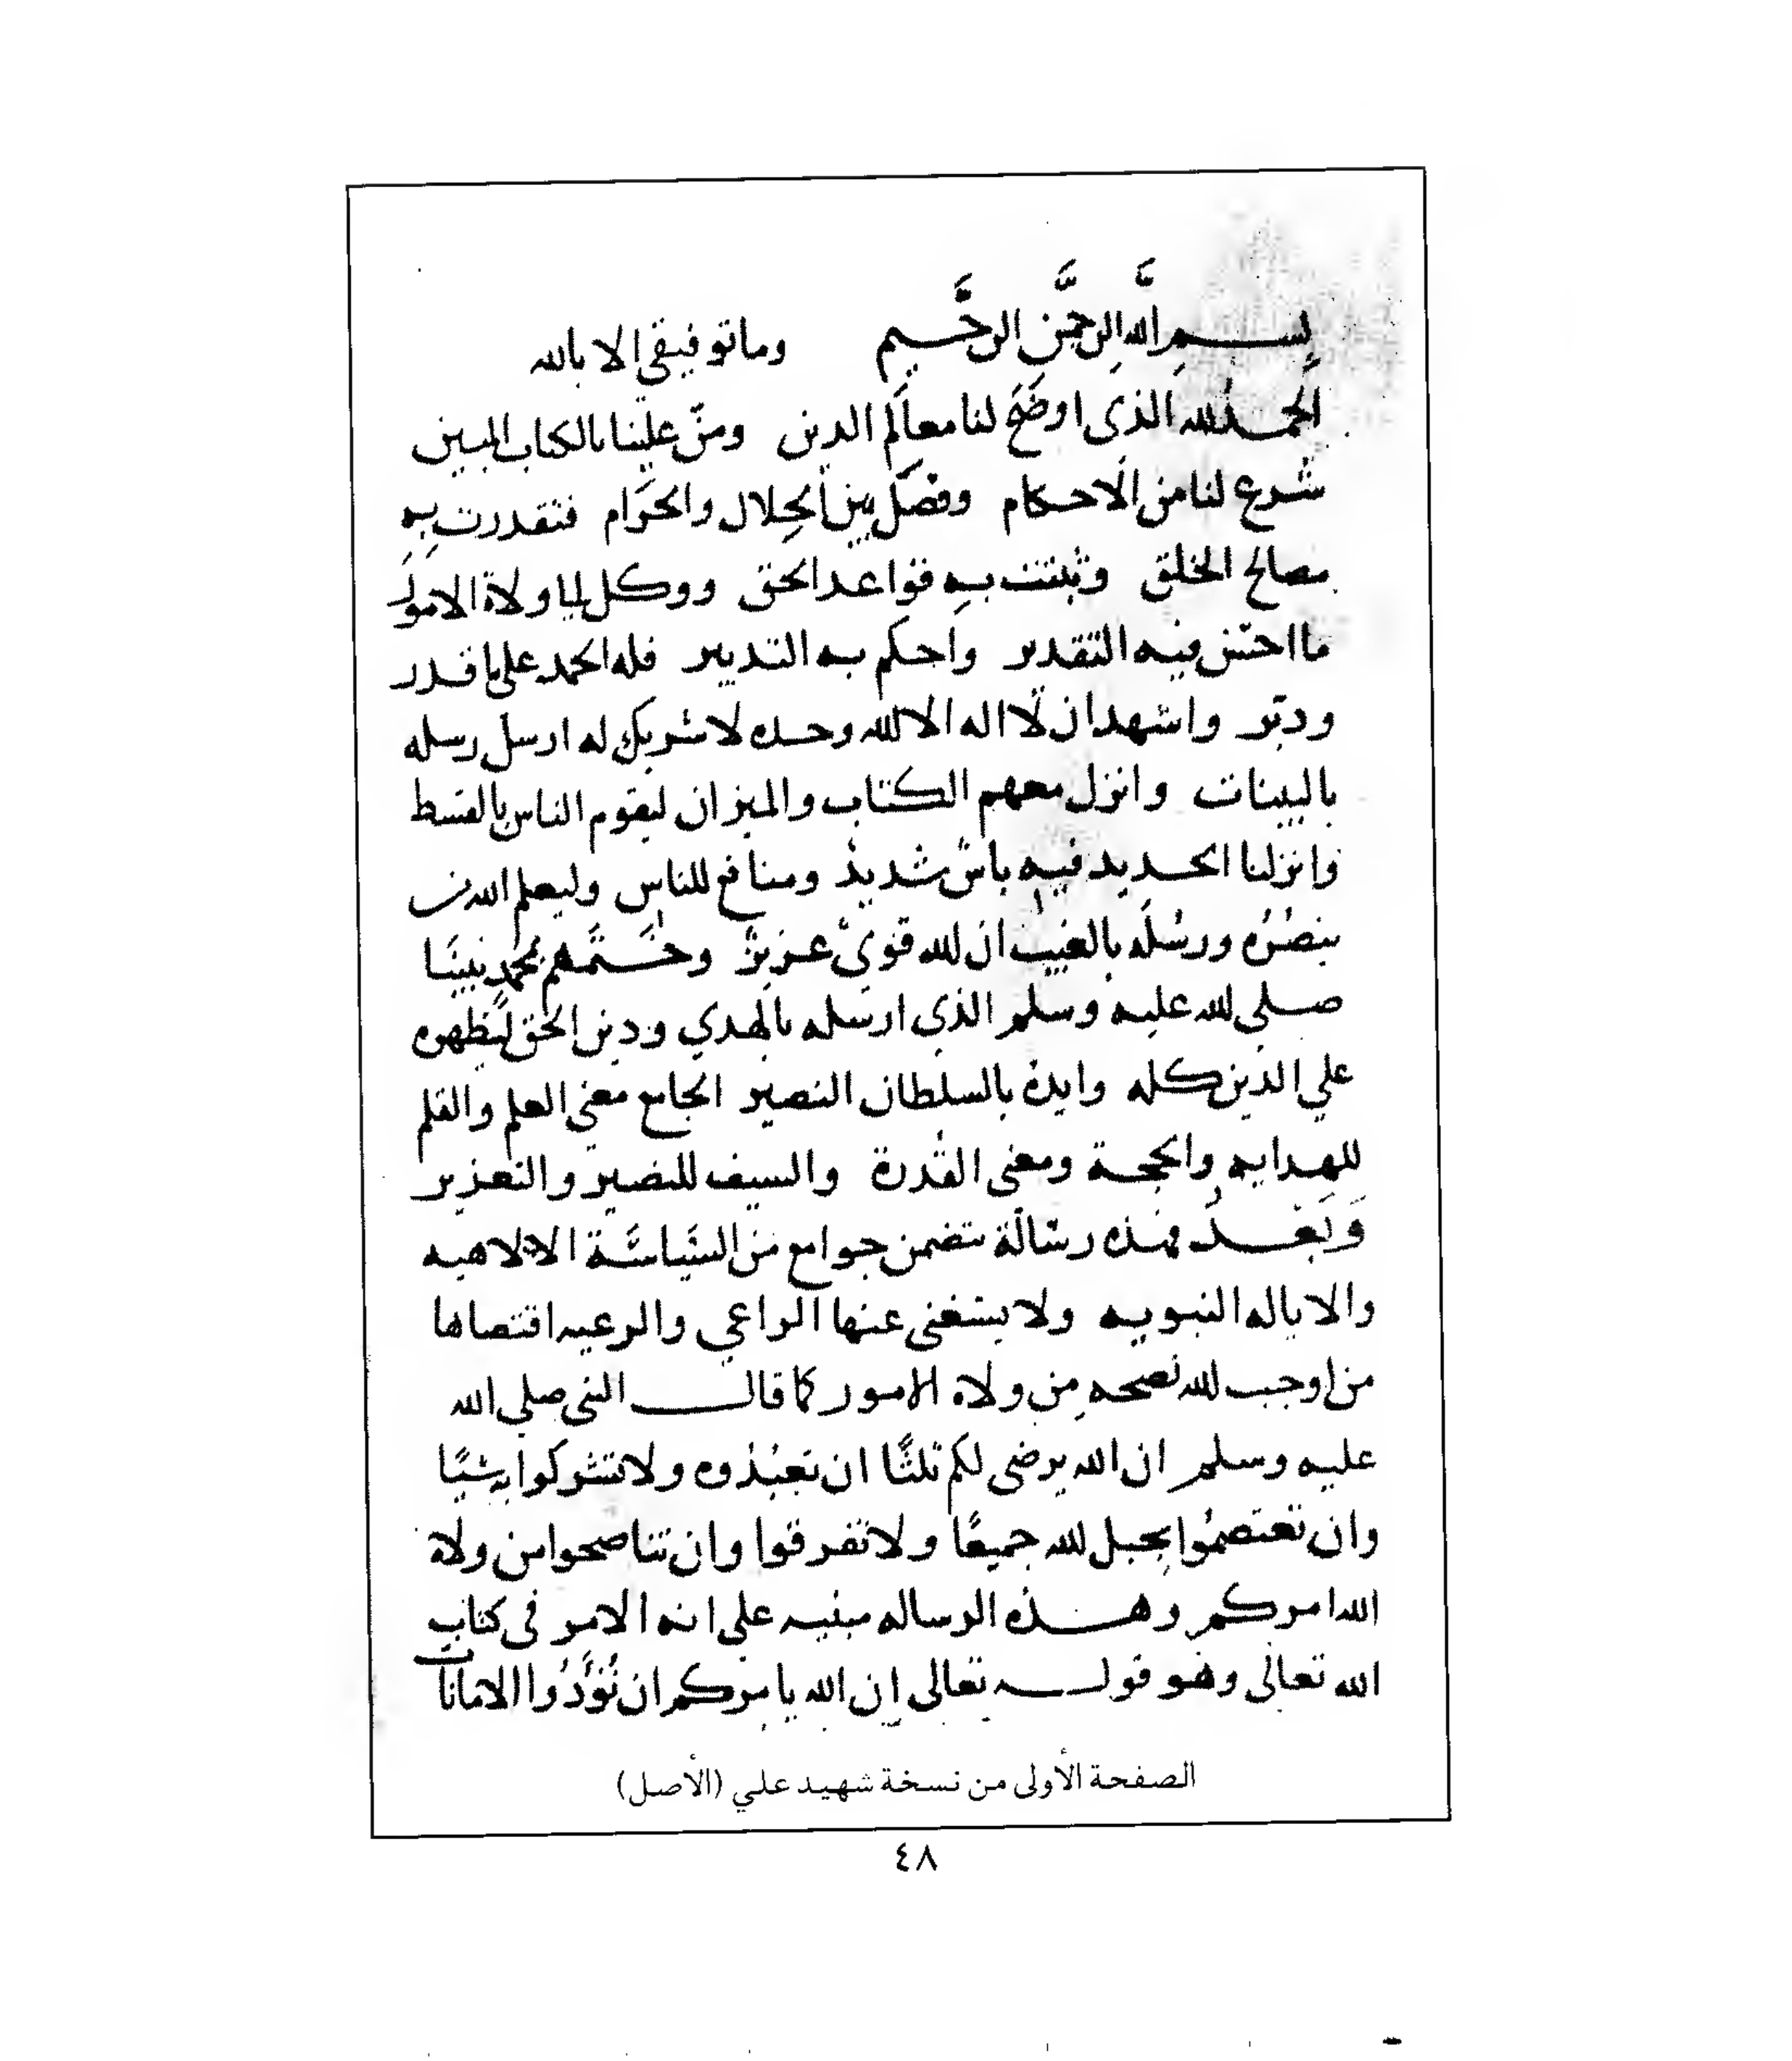 بسم الله الرحمن الرحيم وما توفيقي الا بالله
الحمد لله الذى اوضح لنا معالم الدين ومنّ علينا بالكتاب المبين
شرع لنا من الاحكام وفصل بين الحلال والحرام فتقدرت به
مصالح الخلق وثبتت به قواعد الحق ووكل الى ولاة الامور
ما احسن فيه التقدير واحكم به التدبير فله الحمد على ما قدر
ودبر واشهد ان لا اله الا الله وحده لا شريك له ارسل رسله
بالبينات وانزل معهم الكتاب والميزان ليقوم الناس بالقسط
وانزلنا الحديد فيه باسٌ شديدٌ ومنافع للناس وليعلم الله من
ينصُرُه ورسُلَه بالغيب ان الله قويٌ عزيزٌ وختمهم بمحمدٍ نبينا
صلى الله عليه وسلم الذي ارسله بالهدي ودين الحق ليُظهره
علي الدين كله وايدهُ بالسلطان النصير الجامع معنى العلم والقلم
للهدايه والحجة ومعنى القُدرة والسيف للنصير والتعزير
وَبَعْدُ فهذه رسالة تتضمن جوامع من السّياسَة الالاهيه
والاياله النبويه ولا يستغنى عنها الراعي والرعيه اقتصاها
من اوجب الله نصحه من ولاه الامور كما قال النبى صلي الله
عليه وسلم ان الله يرضى لكم ثلثًا ان تعبُدُوه ولا تشركوا به شيًا
وان تعتصمُوا بحبل الله جميعًا ولا تفرقوا وان تناصحوا من ولاه
الله امركم وهذه الرساله مبنيه على ايه الامر فى كتاب
الله تعالى وهو قوله تعالى ان الله يامركم ان تُؤَدُوا الامانات
الصفحة الأولى من نسخة شهيد علي (الأصل)
٤٨